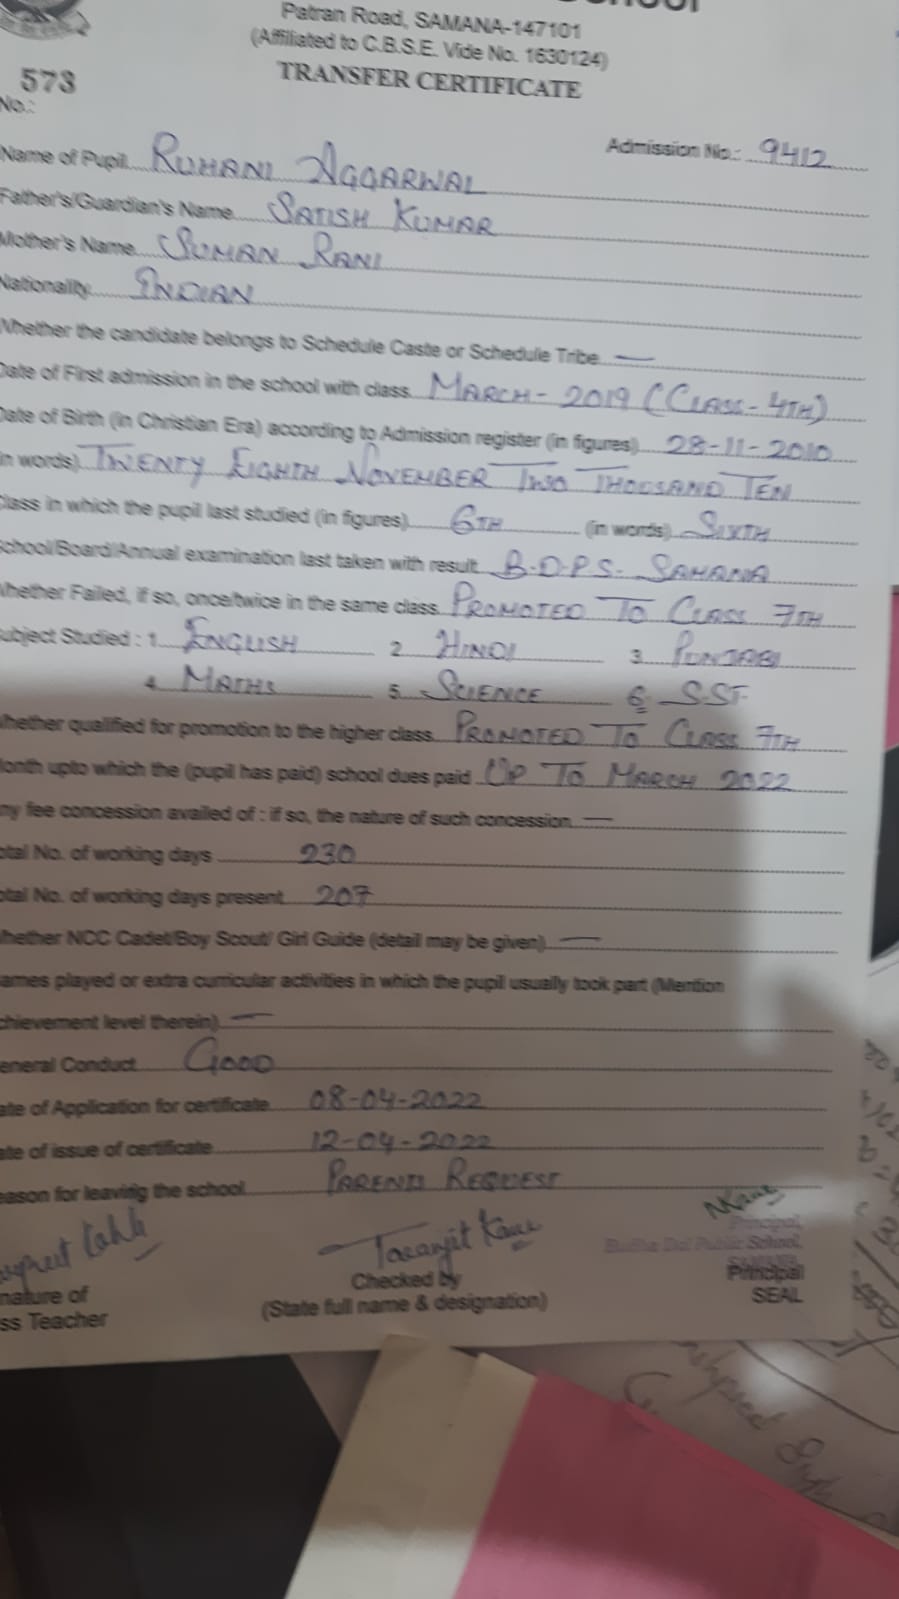 Patran Road, SAMANA-147101
(Affiliated to C.B.S.E. Vide No. 1630124)
573 TRANSFER CERTIFICATE
No.:
Admission No.: 9412
Name of Pupil RUHANI AGGARWAL
Father's/Guardian's Name SATISH KUMAR
Mother's Name SUMAN RANI
Nationality INDIAN
Whether the candidate belongs to Schedule Caste or Schedule Tribe —
Date of First admission in the school with class MARCH - 2019 (CLASS - 4TH)
Date of Birth (in Christian Era) according to Admission register (in figures) 28-11-2010
in words) TWENTY EIGHTH NOVEMBER TWO THOUSAND TEN
Class in which the pupil last studied (in figures) 6TH (in words) SIXTH
School/Board/Annual examination last taken with result B.D.P.S. SAMANA
Whether Failed, if so, once/twice in the same class PROMOTED TO CLASS 7TH
ubject Studied : 1. ENGLISH 2 HINDI 3 PUNJABI
4 MATHS 5 SCIENCE 6 S.ST.
hether qualified for promotion to the higher class PROMOTED TO CLASS 7TH
onth upto which the (pupil has paid) school dues paid UP TO MARCH 2022
ny fee concession availed of : if so, the nature of such concession —
otal No. of working days 230
otal No. of working days present 207
hether NCC Cadet/Boy Scout/ Girl Guide (detail may be given) —
ames played or extra curricular activities in which the pupil usually took part (Mention
chievement level therein) —
eneral Conduct GOOD
ate of Application for certificate 08-04-2022
ate of issue of certificate 12-04-2022
eason for leaving the school PARENTS REQUEST
Taranjit Kaur
Principal,
Budha Dal Public School,
SAMANA
nature of Checked by Principal
ss Teacher (State full name & designation) SEAL